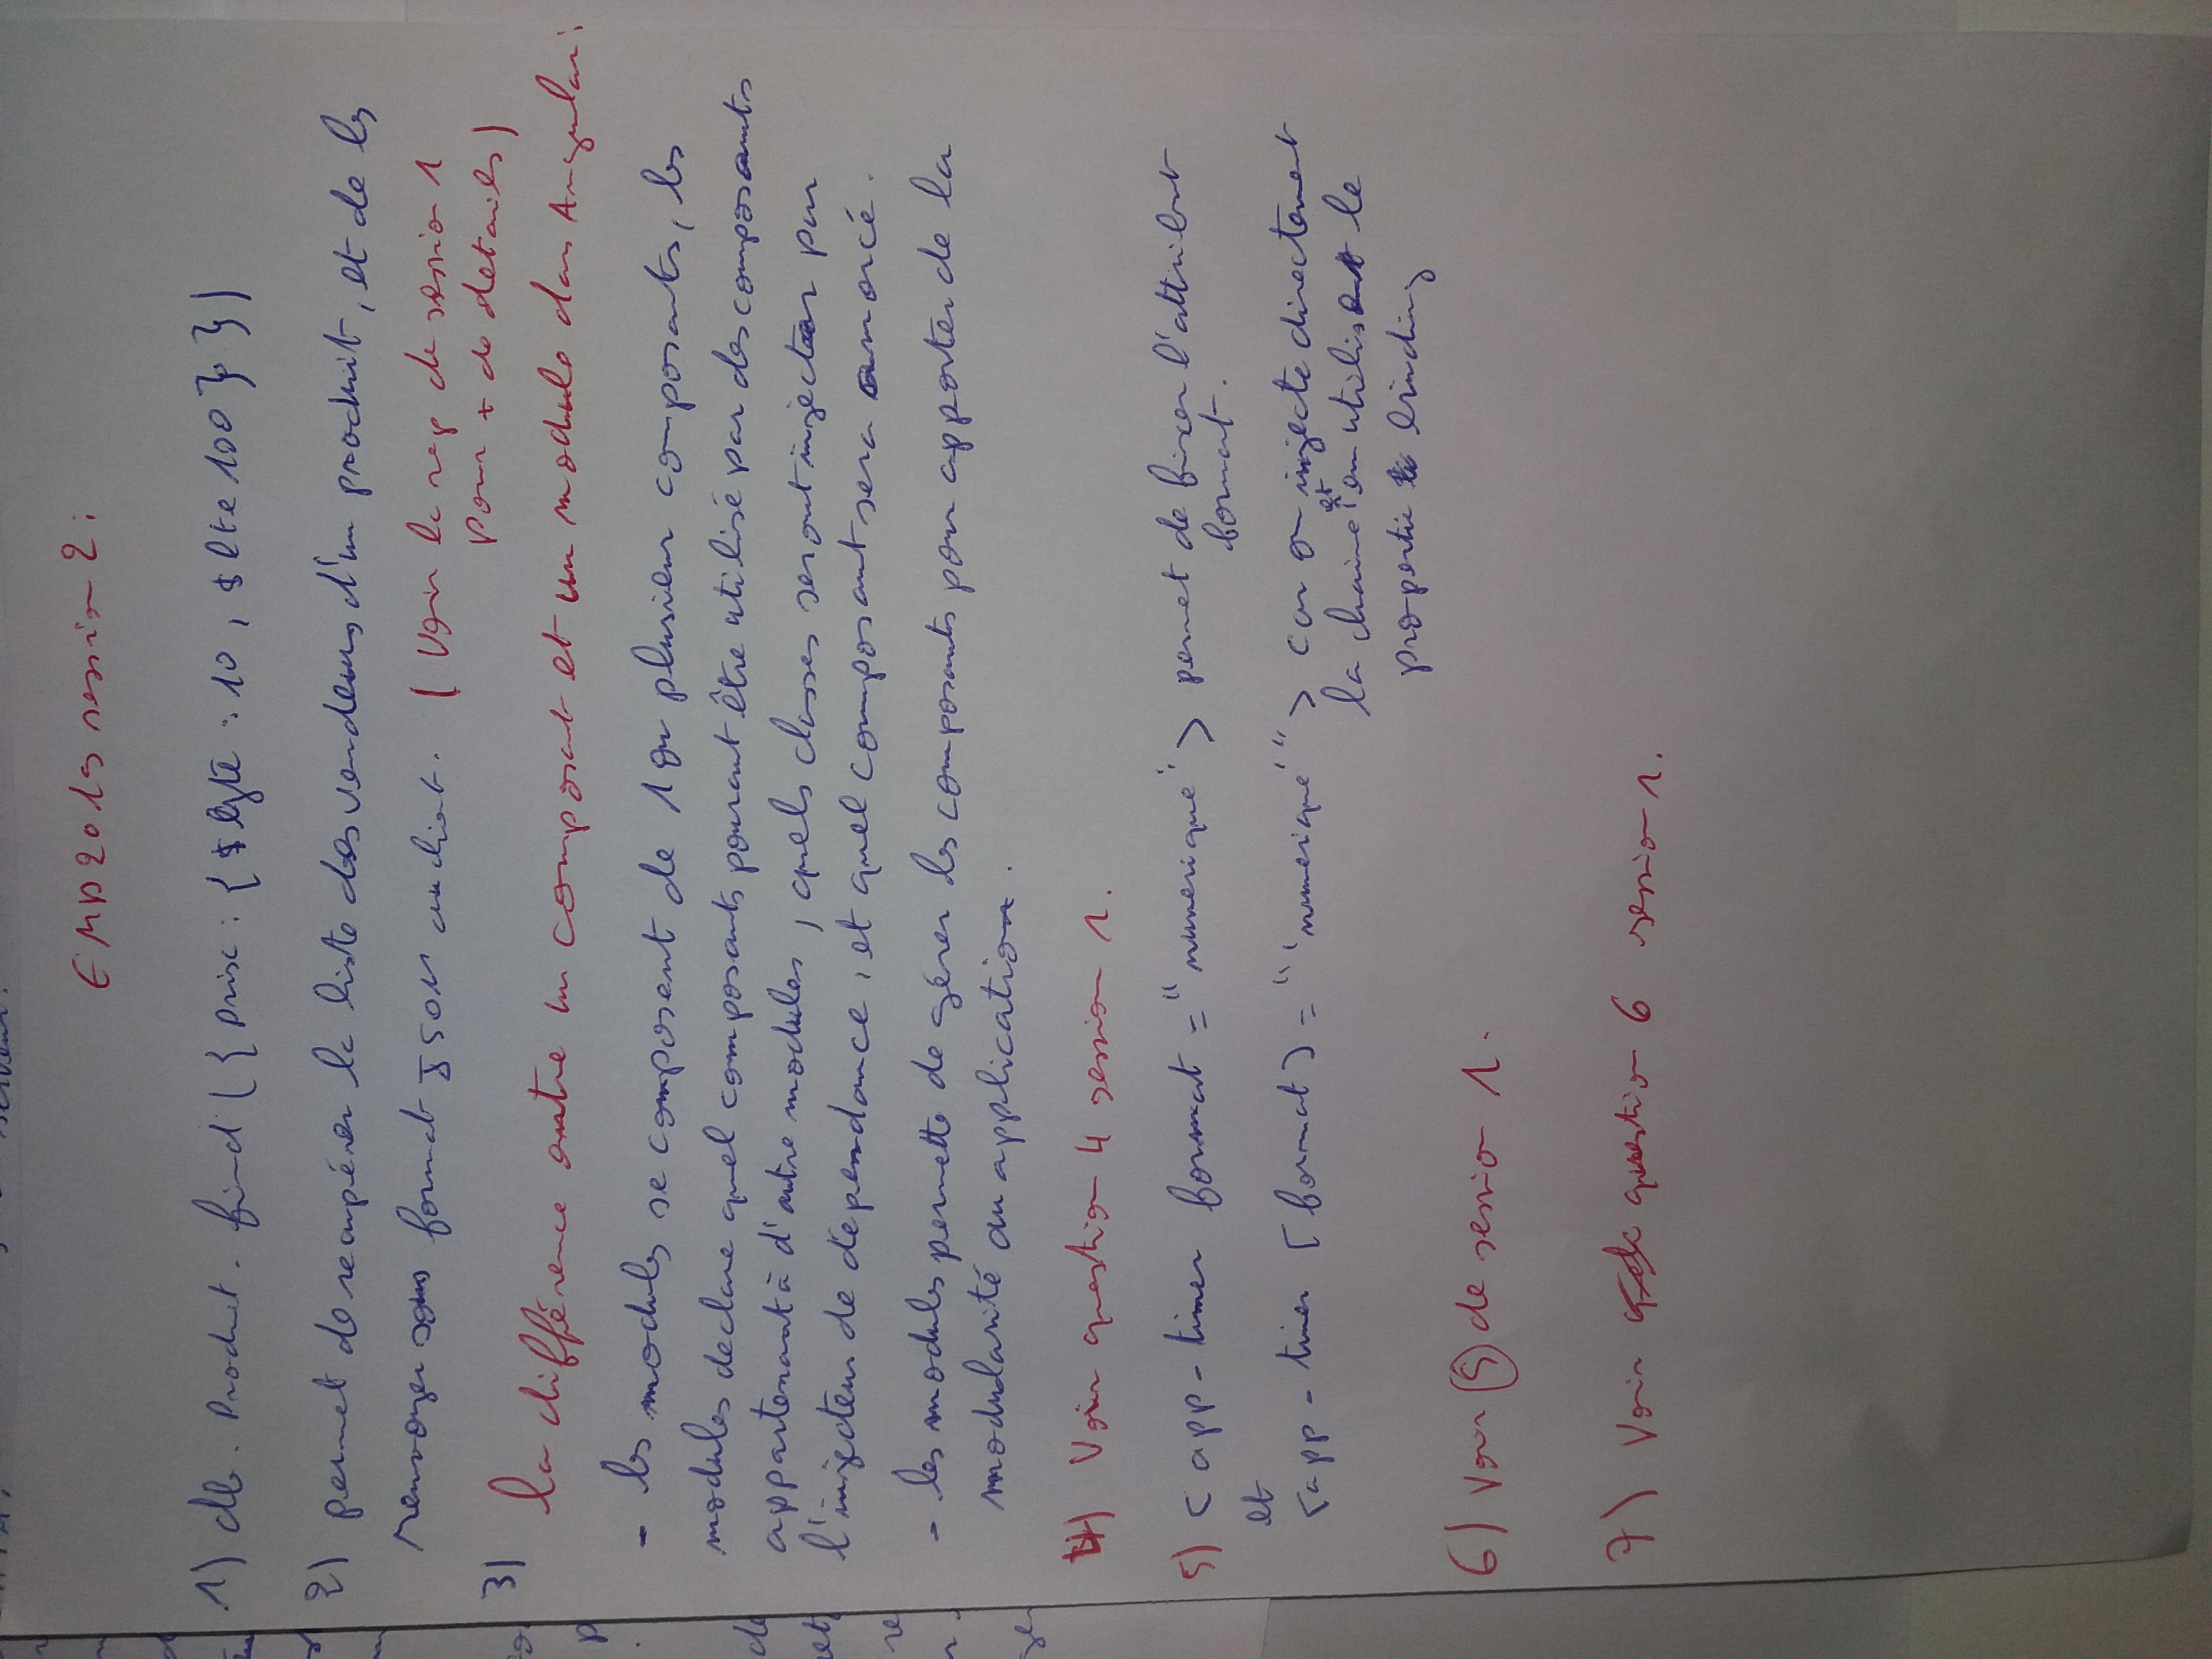 serveur.
EMD 2019 session 2 :
1) db . Produit . find ( { prix : { $ gte : 10 , $ lte 100 } } )
2) permet de recupérer la liste des vendeurs d'un produit, et de les
renvoyer sous format JSON au client. ( Voir la rep de session 1
pour + de details )
3)
la différence entre un composant et un module dans Angular :
- les modules se composent de 1 ou plusieur composants, les
modules declare quel composants pouront être utilisé par des composants
appartenant à d'autre modules, quels classes seront injecter par
l'injecteur de dépendance, et quel composant sera amorcé .
- les modules permette de gérer les composants pour apporter de la
modularité au application .
4) Voir question 4 session 1.
5) < app - timer format = "numerique" > permet de fixer l'attribut
format .
et
< app - timer [ format ] = "'numerique'" > car on injecte directement
la chaine et en utilisant le
propertie binding
6) Voir 5 de session 1 .
7) Voir question 6 session 1.